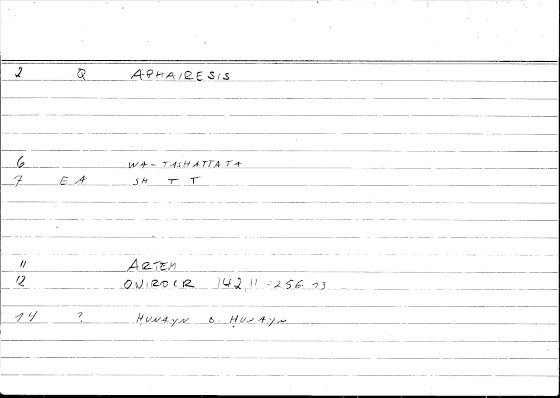 2 Q APHAIRESIS
6 WA-TASHATTATA
7 E A SH T T
11 ARTEM
12 ONIROCR 142,11 - 256,13
14 ? ḤUNAYN B. ḤUNAYN